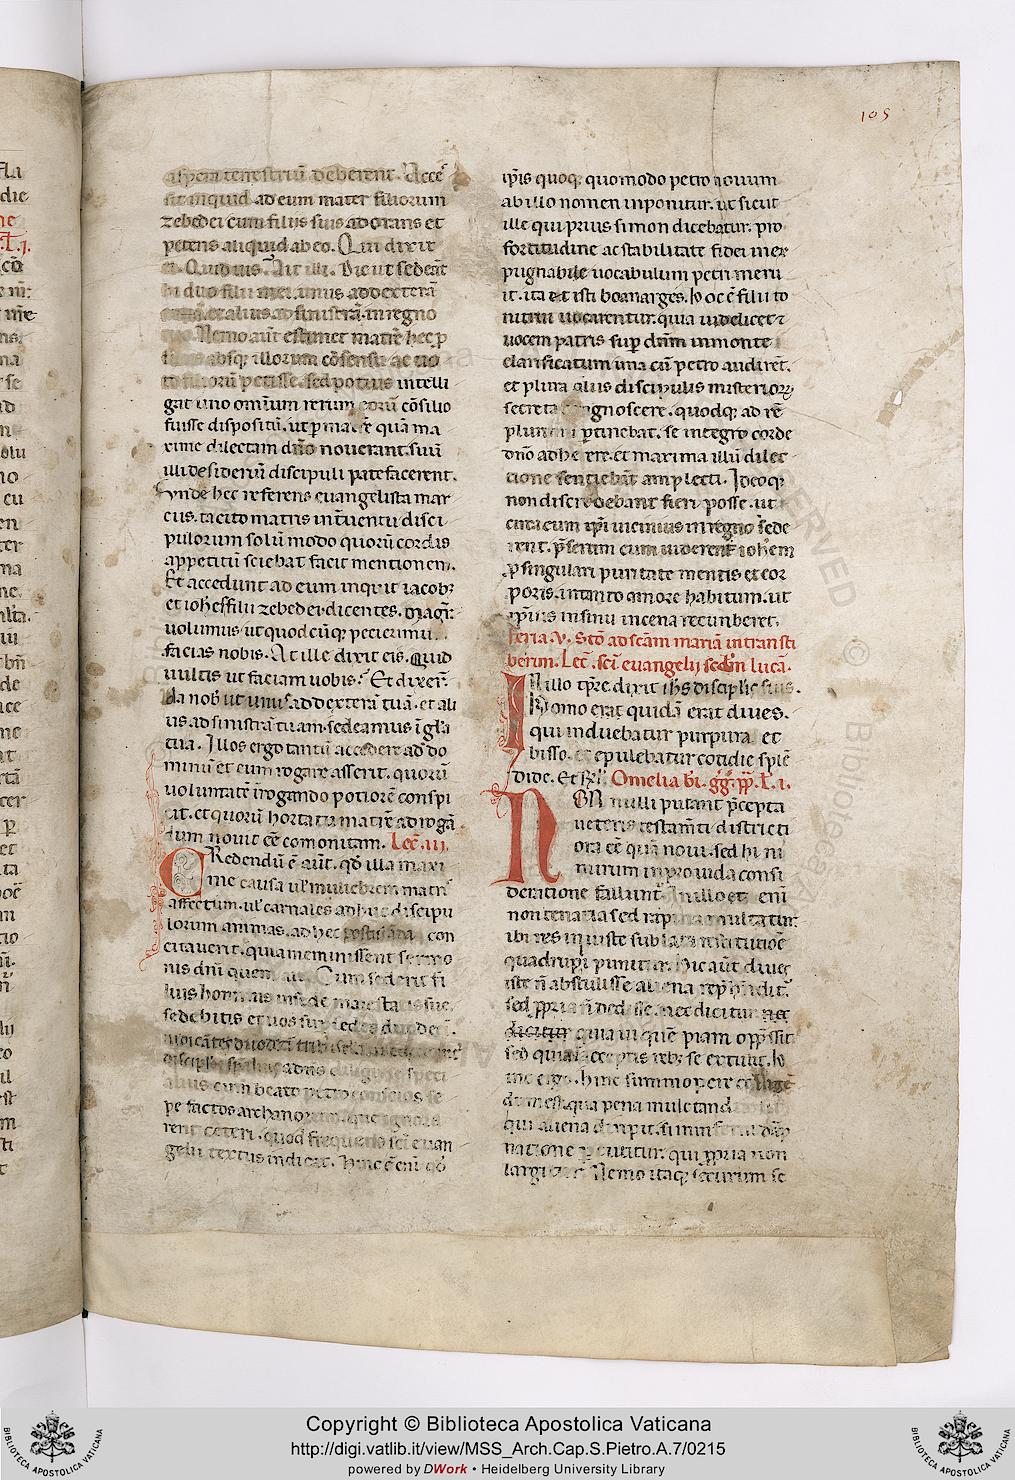 105
terrestriu deberent. Acces
sit inquid ad eum mater filiorum
zebedei cum filiis suis adorans et
petens aliquid ab eo. Qui dixit
ei. Quid uis. Ait illi. Dic ut sedeāt
hi duo filii mei. unus ad dexterā
et alius ad sinistrā. in regno
Nemo aūt estimet matrē hec p
absq; illorum cōsensu ac uo
to filiorū petisse. sed potius intelli
gat uno omnium rerum eorū cōsilio
fuisse dispositū. ut p matrē quā ma
xime dilectam dño nouerant. suū
illi desideriū discipuli patefacerent.
Vnde hec referens euangelista mar
cus. tacito matris interuentu disci
pulorum solū modo quorū cordis
appetitū sciebat facit mentionem.
Et accedunt ad eum inquit iacob;
et iohēs filii zebedei dicentes. magr̄.
uolumus ut quodcūq; pecierim;
facias nobis. At ille dixit eis. Quid
uultis ut faciam uobis. Et dixer̄.
Da nob ut un; ad dexterā tuā. et ali
us ad sinistrā tuam. sedeamus ī glā
tua. Illos ergo tantū accedere ad do
minū et eum rogare asserit. quorū
uoluntatē īrogando potiorē conspi
cit. et quorū hortatu matrē ad rogā
dum nouit eē comonitam. Lec̄. iii.
Credendū ē aūt. qd̄ illa maxi
me causa uł muliebrem matris
affectum. uł carnales adhuc discipu
lorum animas. ad hec con
citauerit. quia meminissent sermo
nis dñi quem ait. Cum sederit fi
lius hominis in sede maiestatis sue.
sedebitis et uos sup sedes duodeci.
iudicātes duodecī trib;
discipłs
alius eum beato petro conscios. se
pe factos archanorum. que ignora
rent ceteri. quod frequens scī euan
gelii textus indicat. Hinc ē enī qd̄
ipsis quoq; quomodo petro nouum
ab illo nomen inponitur. ut sicut
ille qui prius simon dicebatur. pro
fortitudine ac stabilitate fidei inex
pugnabile uocabulum petri meru
it. ita et isti boanarges. ho oc ē filii to
nitrui uocarentur. quia uidelicet
uocem patris sup dñm in monte
clarificatum una cū petro audirēt.
et plura alius discipulis misterior;
secreta cognoscere. quodq; ad rē
plurimi ptinebat. se integro corde
dño adherere. et maxima illū dilec
tione sentiebāt amplecti. Ideoq;
non discredebant fieri posse. ut
circa eum ipi uicinius in regno sede
rent. p̄sertim cum uiderent iohēm
p singulari puritate mentis et cor
poris. in tanto amore habitum. ut
ipsius in sinu in cena recumberet.
feria. v. Stō ad scām mariā in transti
berim. Lec̄. scī euangelij scdm lucā.
In illo tp̄re dixit ihs discipłis suis.
Homo erat quidā erat diues.
qui induebatur purpura et
bisso. et epulebatur cotidie splē
dide. Et rł. Omelia bī. gg̅. pp̅. Ł. i.
Non nulli putant p̄cepta
ueteris testamti districti
ora eē quā noui. sed hi ni
mirum inprouida consi
deratione fallunt. In illo et enī
non tenatia sed rapina multatur.
ibi res iniuste sublata restitutiōe
quadrupi punitur. Hic aūt diues
iste n̄ abstulisse aliena rep̄hendit.
sed ppria n̄ dedisse. nec dicitur nec
dicitur quia ui quē piam opp̄ssit
sed quia acceptis reb; se extulit. Ho
inc ergo. hinc summo pere
dum est. qua pena mulctand
qui aliena diripit. si inferni dāp
natione p cutitur. qui ppria non
largitur. Nemo itaq; securum se
Copyright © Biblioteca Apostolica Vaticana
http://digi.vatlib.it/view/MSS_Arch.Cap.S.Pietro.A.7/0215
powered by DWork • Heidelberg University Library
BIBLIOTECA APOSTOLICA VATICANA
BIBLIOTECA APOSTOLICA VATICANA